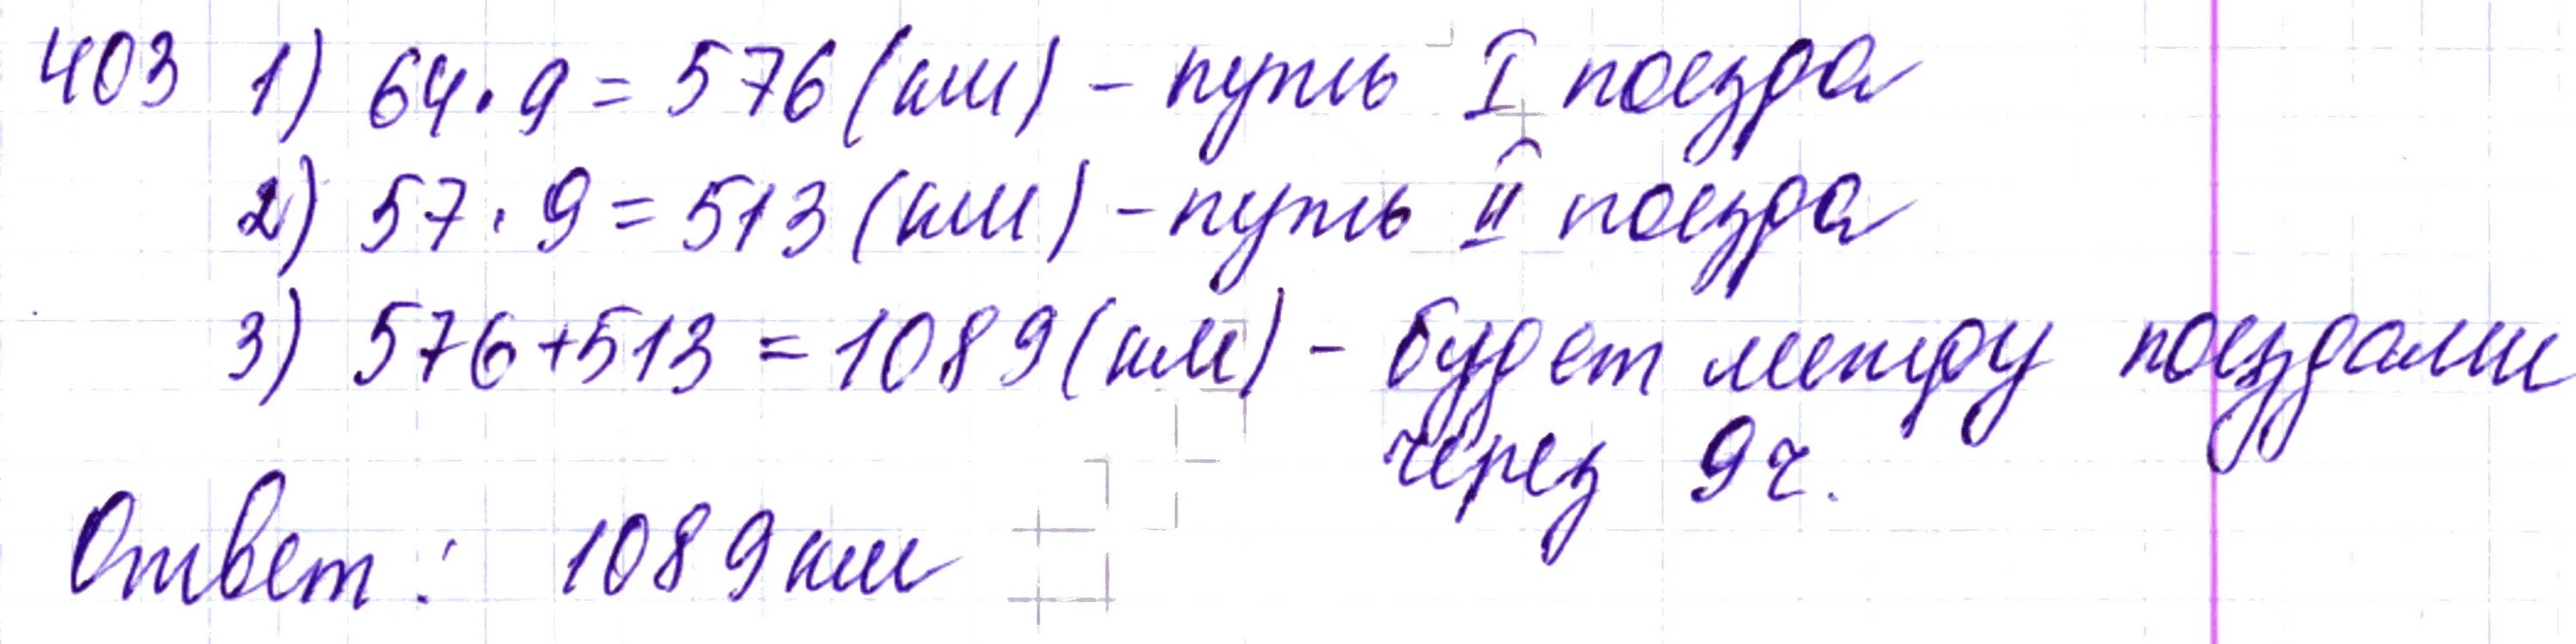 403 1) 64 · 9 = 576 (км) - путь I поезда
2) 57 · 9 = 513 (км) - путь II поезда
3) 576 + 513 = 1089 (км) - будет между поездами
через 9 ч.
Ответ : 1089 км